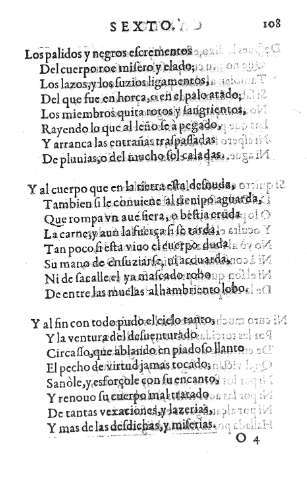 SEXTO. 108
Los palidos y negros escrementos
Del cuerpo roe misero y elado,
Los lazos, y los suzios ligamentos,
Del que fue en horca, o en el palo atado;
Los miembros quita rotos y sangrientos,
Rayendo lo que al leño se à pegado,
Y arranca las entrañas traspassadas
De pluuias, o del mucho sol caladas.
Y al cuerpo que en la tierra esta desnuda,
Tambien si le conuiene al tienpo aguarda,
Que rompa vn aue fiera, o bestia cruda
La carne, y aun la fuerça si se tarda,
Tan poco si esta viuo el cuerpo duda
Su mano de ensuziarse, ni acuarda,
Ni de sacalle el ya mascado robo
De entre las muelas al hambriento lobo.
Y al fin con todo pudo el cielo tanto,
Y la ventura del desuenturado
Circasso, que ablando en piadoso llanto
El pecho de virtud jamas tocado,
Sanòle, y esforçole con su encanto,
Y renouo su cuerpo mal tratado
De tantas vexaciones, y lazerias,
Y mas de las desdichas, y miserias.
O 4